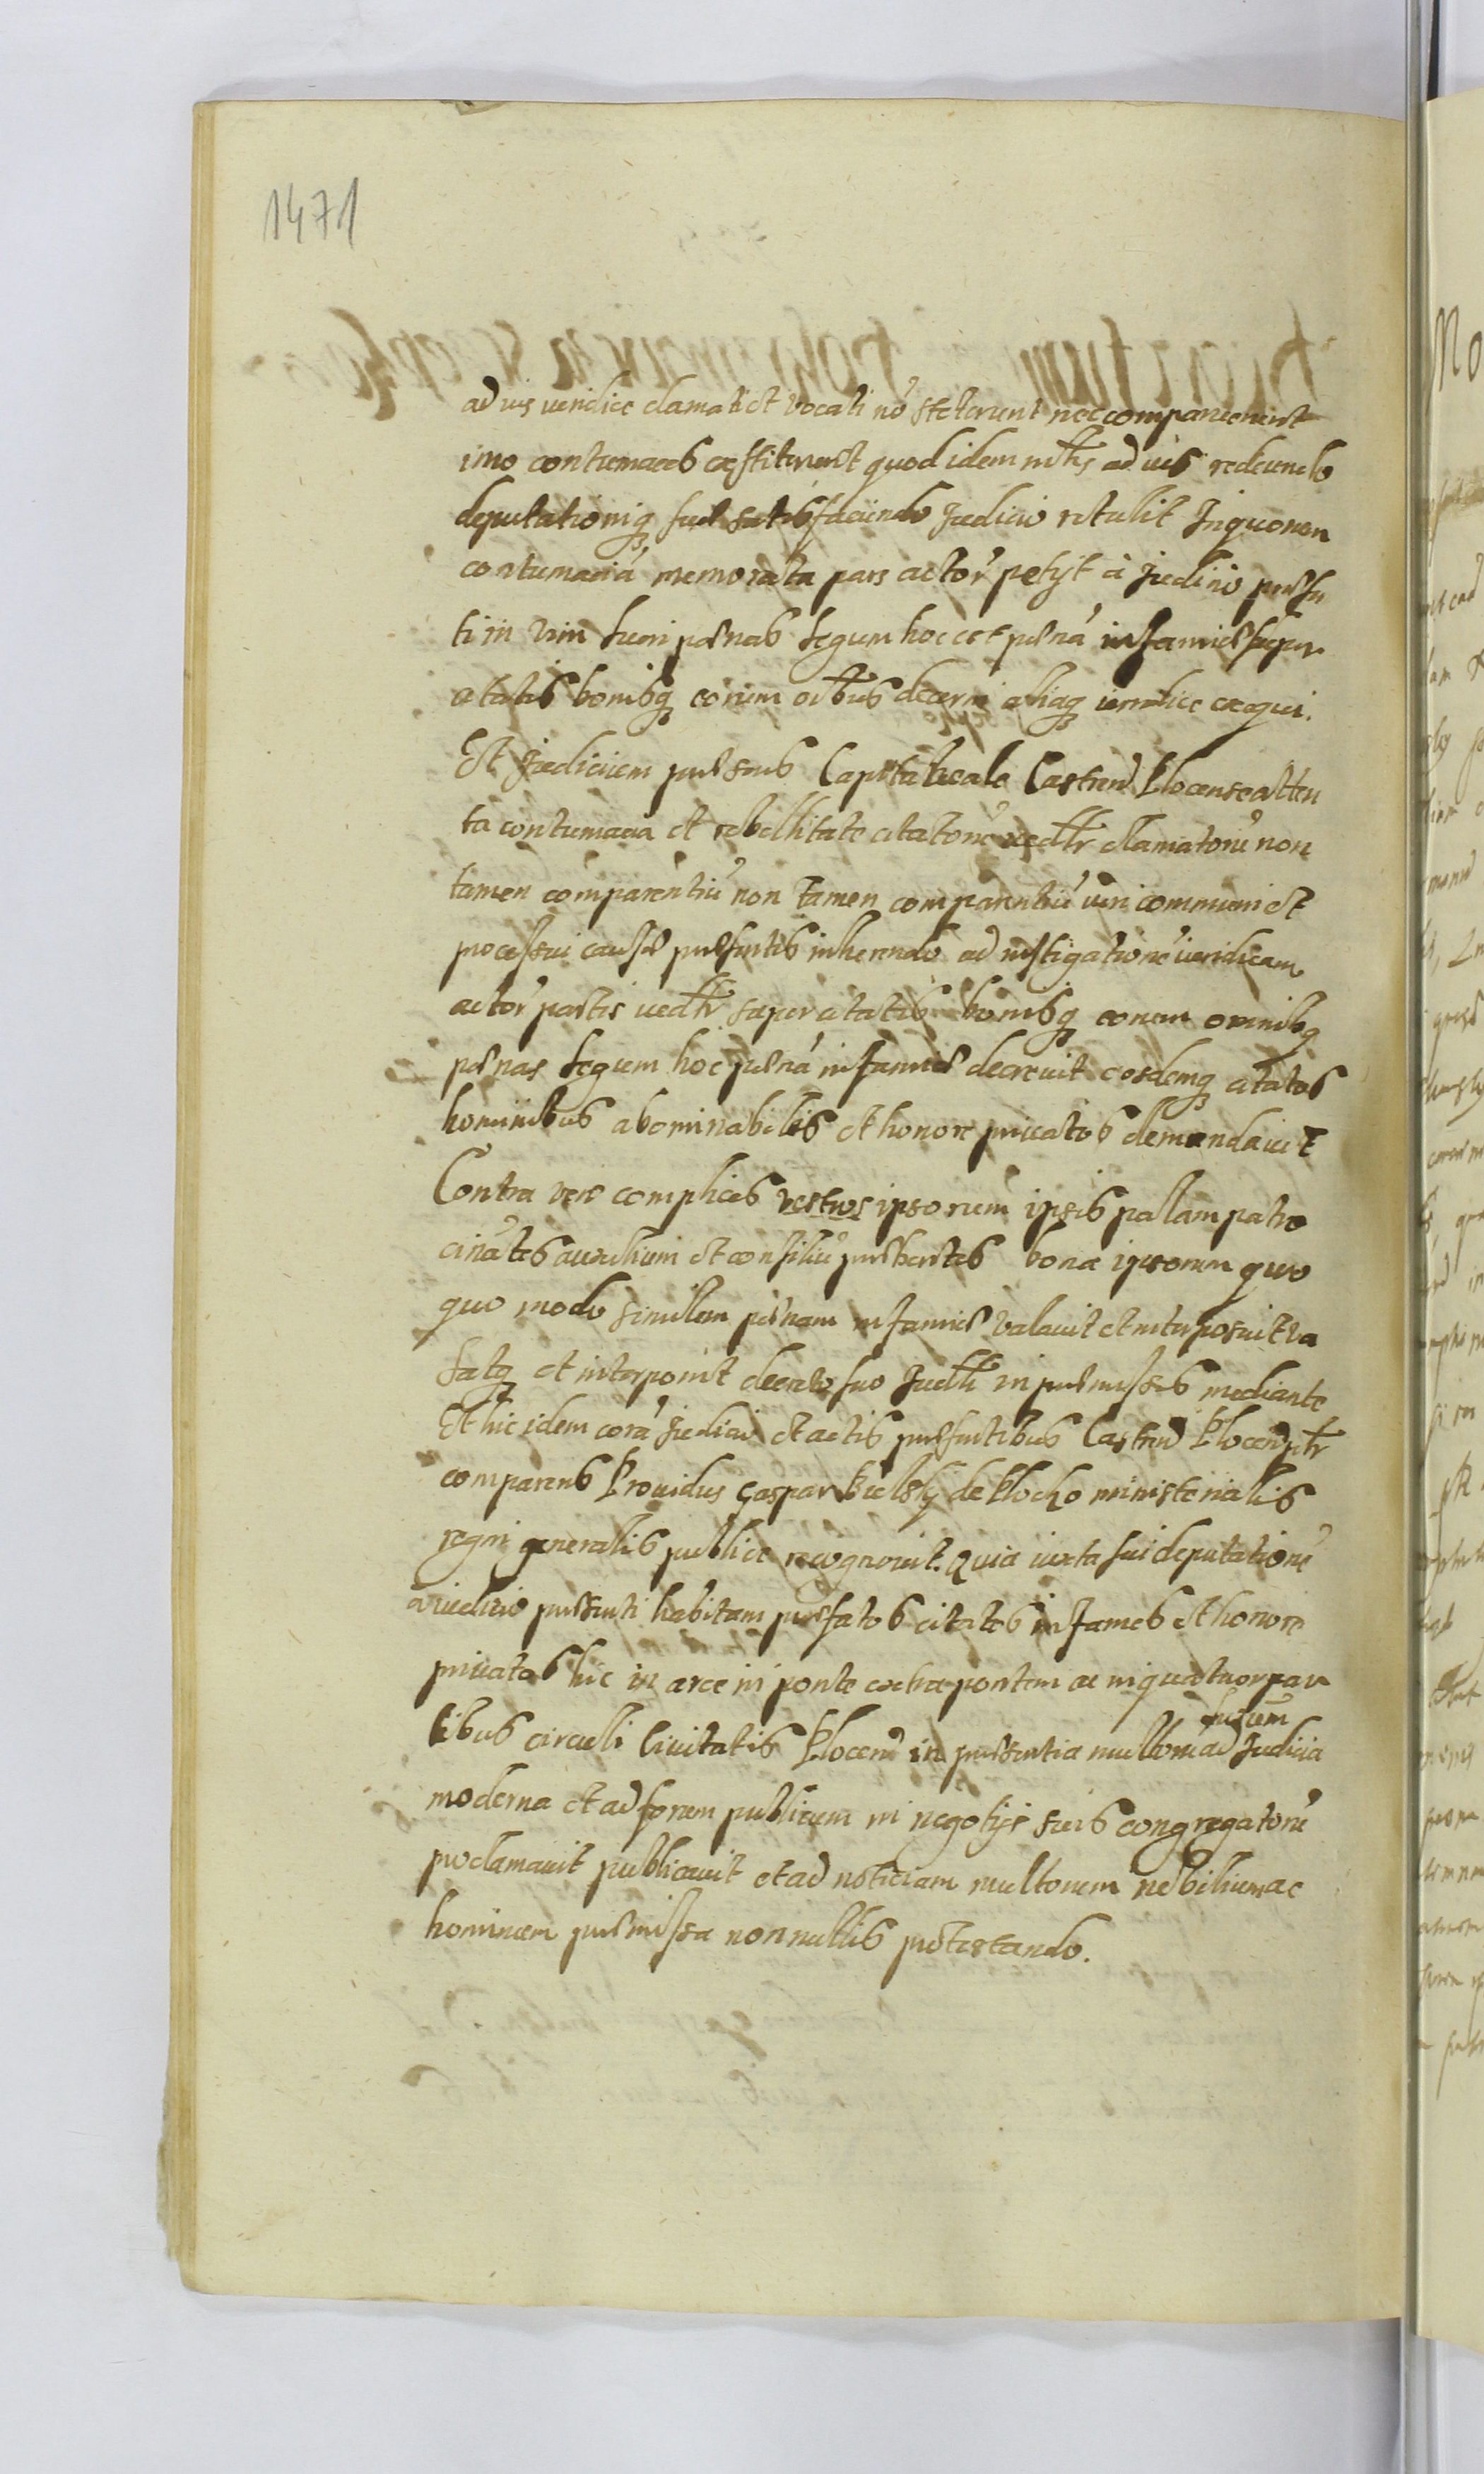 1471
ad ius veridice clamati et vocati nō steterunt nec comparuerunt
imo contumaces exstiterunt quod idem mtlis ad ius redeundo
deputationiq suæ satisfaciendo Judicio retulit In quorum
contumaciā memorata pars actor petijt à Judicio præsen
ti in vim lucri pœnas legum hoc est pœnā infamiæ super
citatis bonisq eorum oībus decerni aliaq iuridice exequi.
Et Judicium præsens Capitaneale Castren Plocense atten
ta contumacia et rebellitate citatorū clamatorū non
tamen comparentiū non tamen comparentiū iuri communi et
processui causæ præsentis inherendo ad instigationē iuridicam
actor partis super citatis bonisq eorum omnibq
pœnas legum hoc pœnā infamiæ decrevit eosdemq citatos
hominibus abominabiles et honore privatos demandavit
Contra vero complices ipsorum ipsis palam patro
cinātes auxilium et consiliū præbentes bona ipsorum quo
quo modo similem pœnam infamiæ valavit et interposuit va
latq et interponit decreto suo in præmissis mediante
Et hic idem corā Judicio et actis præsentibus Castren Plocen ptr
comparens Providus Gaspar Bielsky de Plocko ministerialis
regni generalis publice recognovit. Quia iuxta sui deputationē
a iudicio præsenti habitam præfatos citatos infames et honore
privatos hic in arce in ponte extra pontem ac in quatuor par
tibus circuli Civitatis Plocen in præsentia multorū ad Judicia
moderna et ad forum publicum in negotijs suis congregatorū
proclamavit publicavit et ad notitiam multorum nobilium ac
hominum præmissa nonnullis protestando.